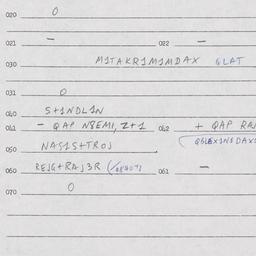 020 0
021 — 022 —
030 M1TAKR1M1MDAX GLAT
031 0
040 S+1NDL1N
041 — QAP N8EMI, Z+1 042 + QAP RA
050 NAS1S+TROJ
060 REJG+RAJ3R 061 —
070 0